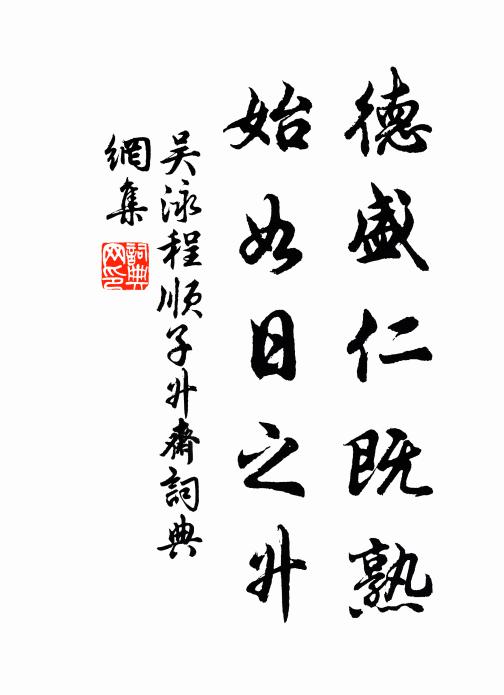 德盛仁既熟
始如日之升
吴泳程順子升齋詞典
網集
詞典
网印